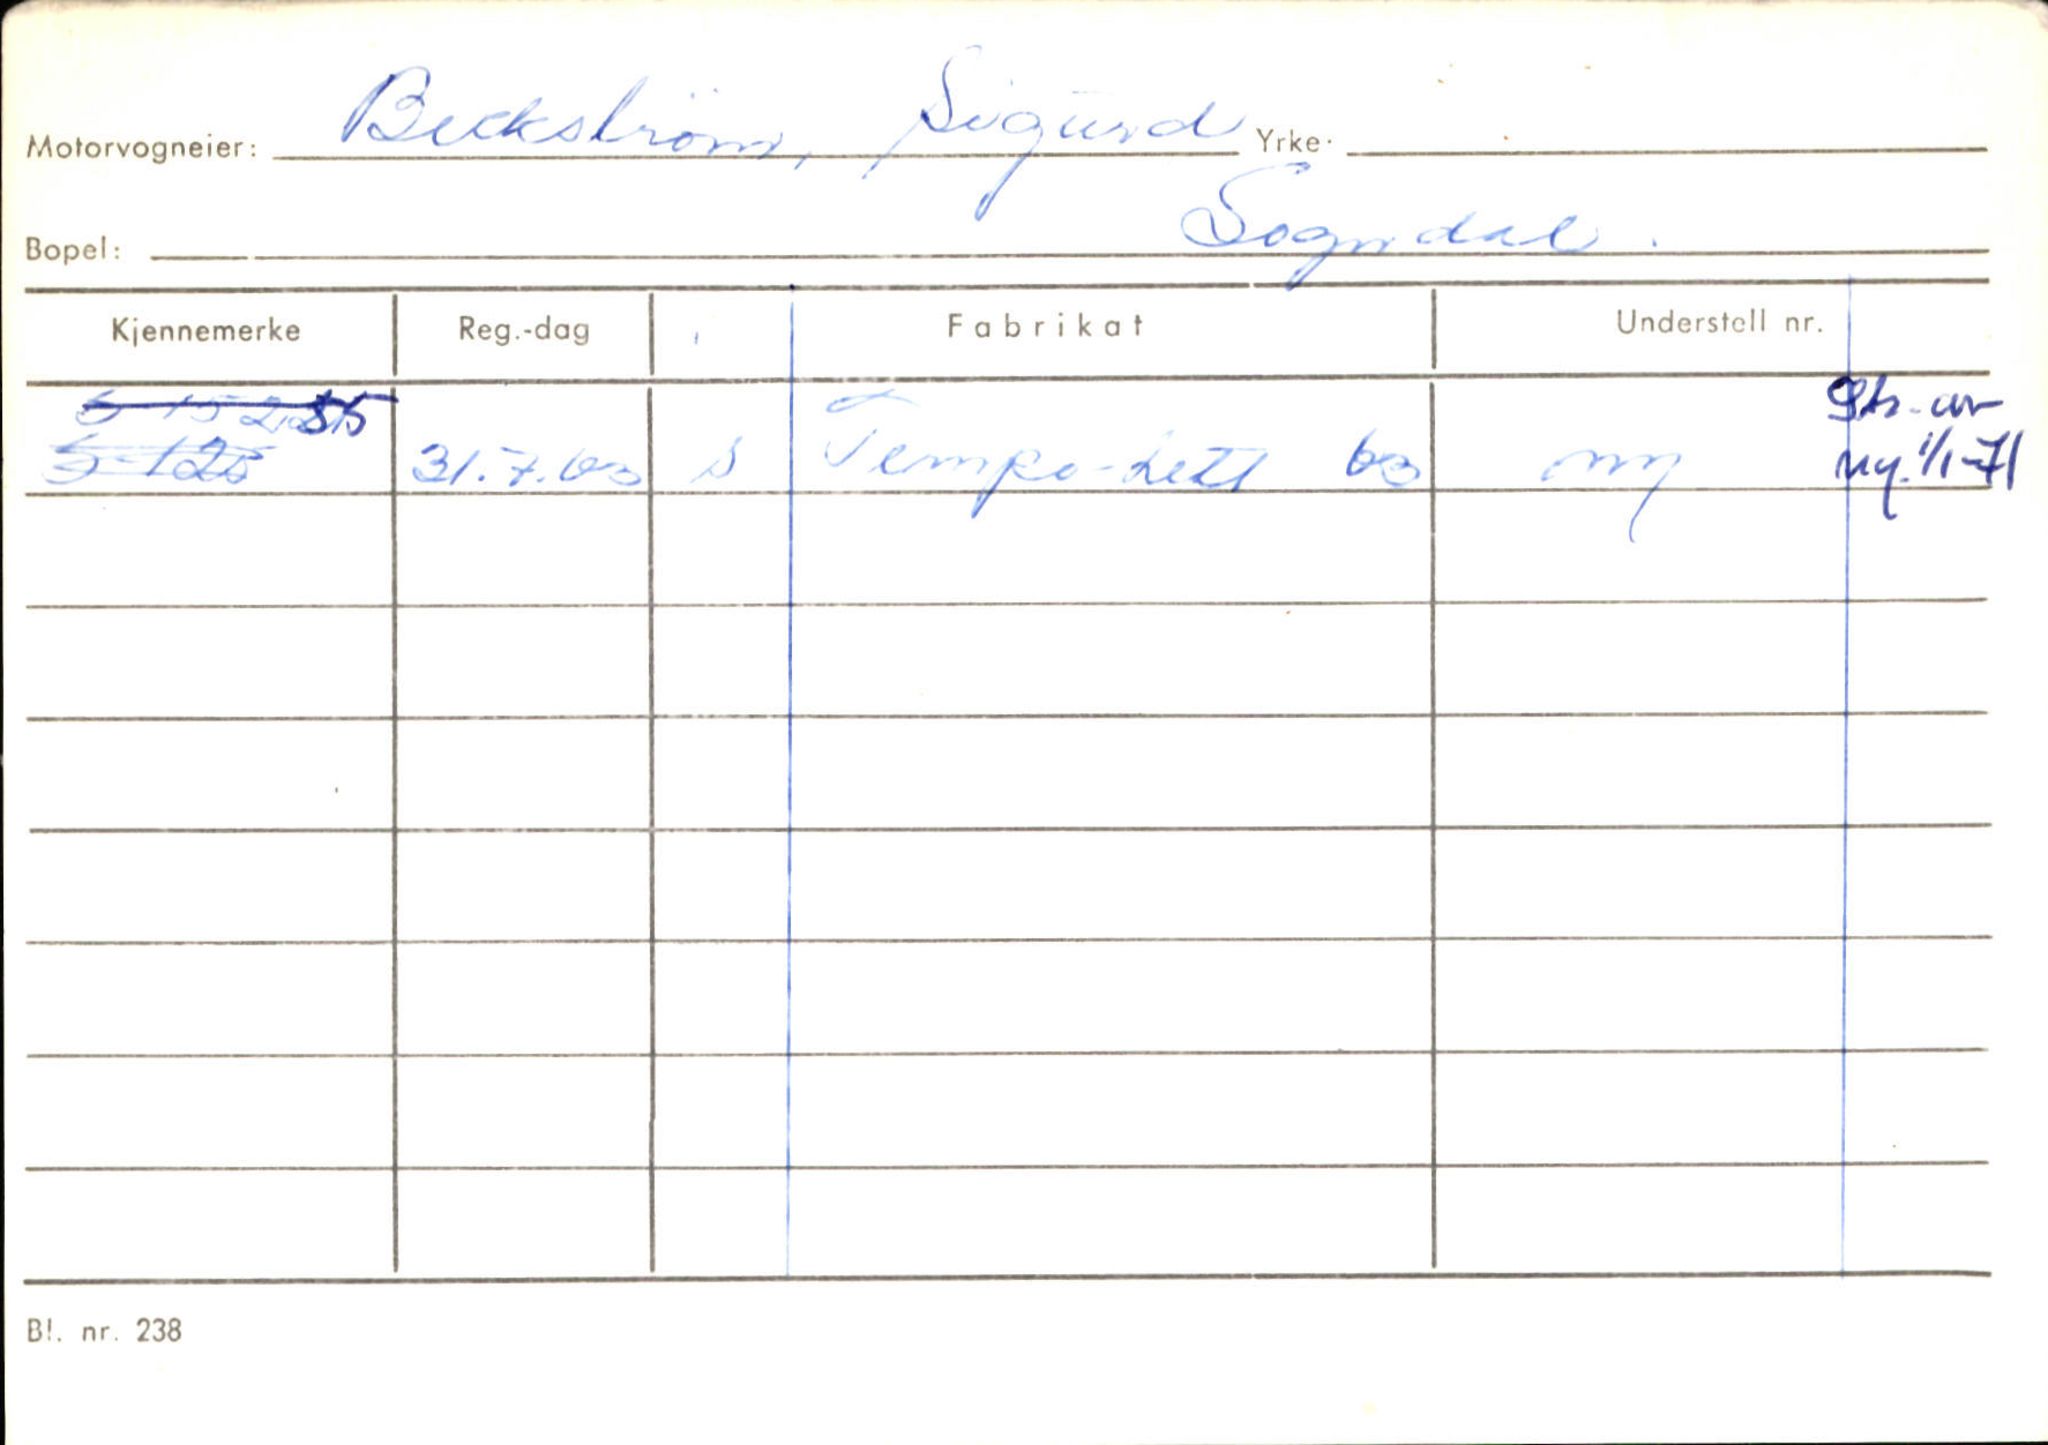 Motorvogneier: Beckström, Sigurd Yrke:
Bopel: Sogndal.
Kjennemerke Reg.-dag Fabrikat Understell nr.
Str. av
S-125 31.7.63 s Tempo-Lett 63 ny ny. 1/1-71
Bl. nr. 238